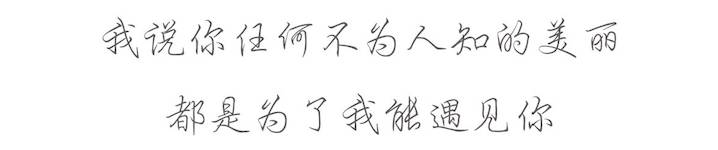 我说你任何不为人知的美丽
都是为了我能遇见你